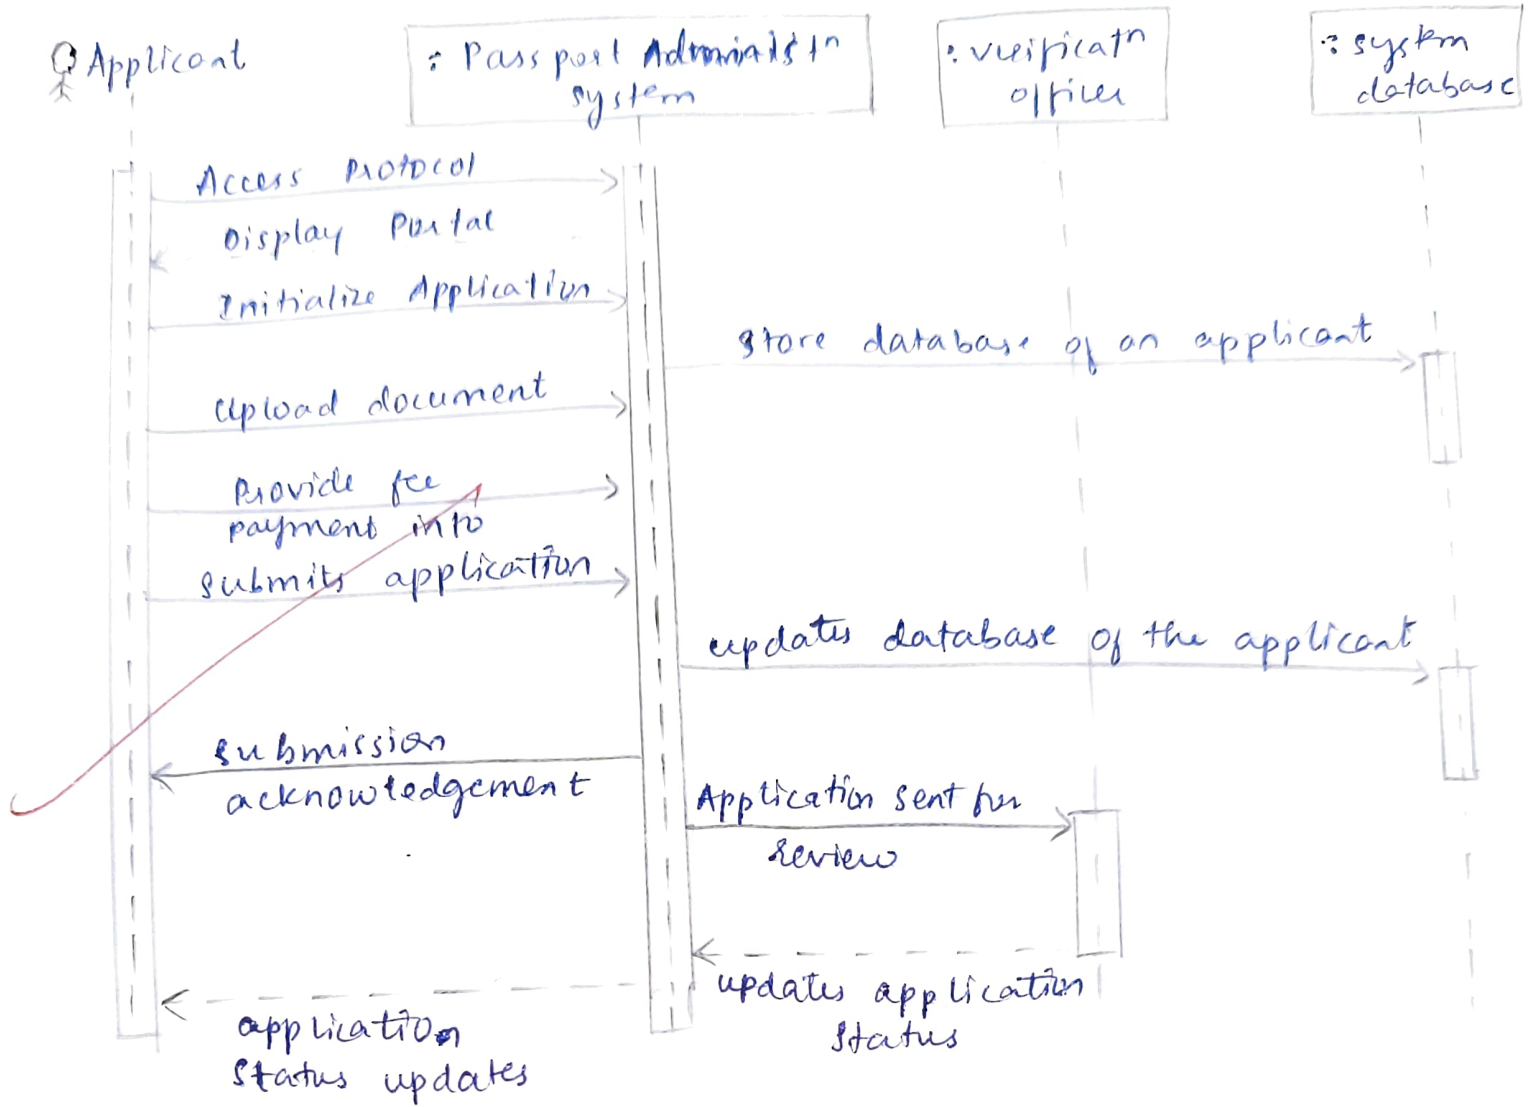 Applicant
: Passport Administn
system
: verificatn
officer
: system
database
Access Protocol
Display Portal
Initialize Application
Store database of an applicant
Upload document
Provide fee
payment info
submits application
updates database of the applicant
submission
acknowledgement
Application sent for
review
updates application
status
application
status updates